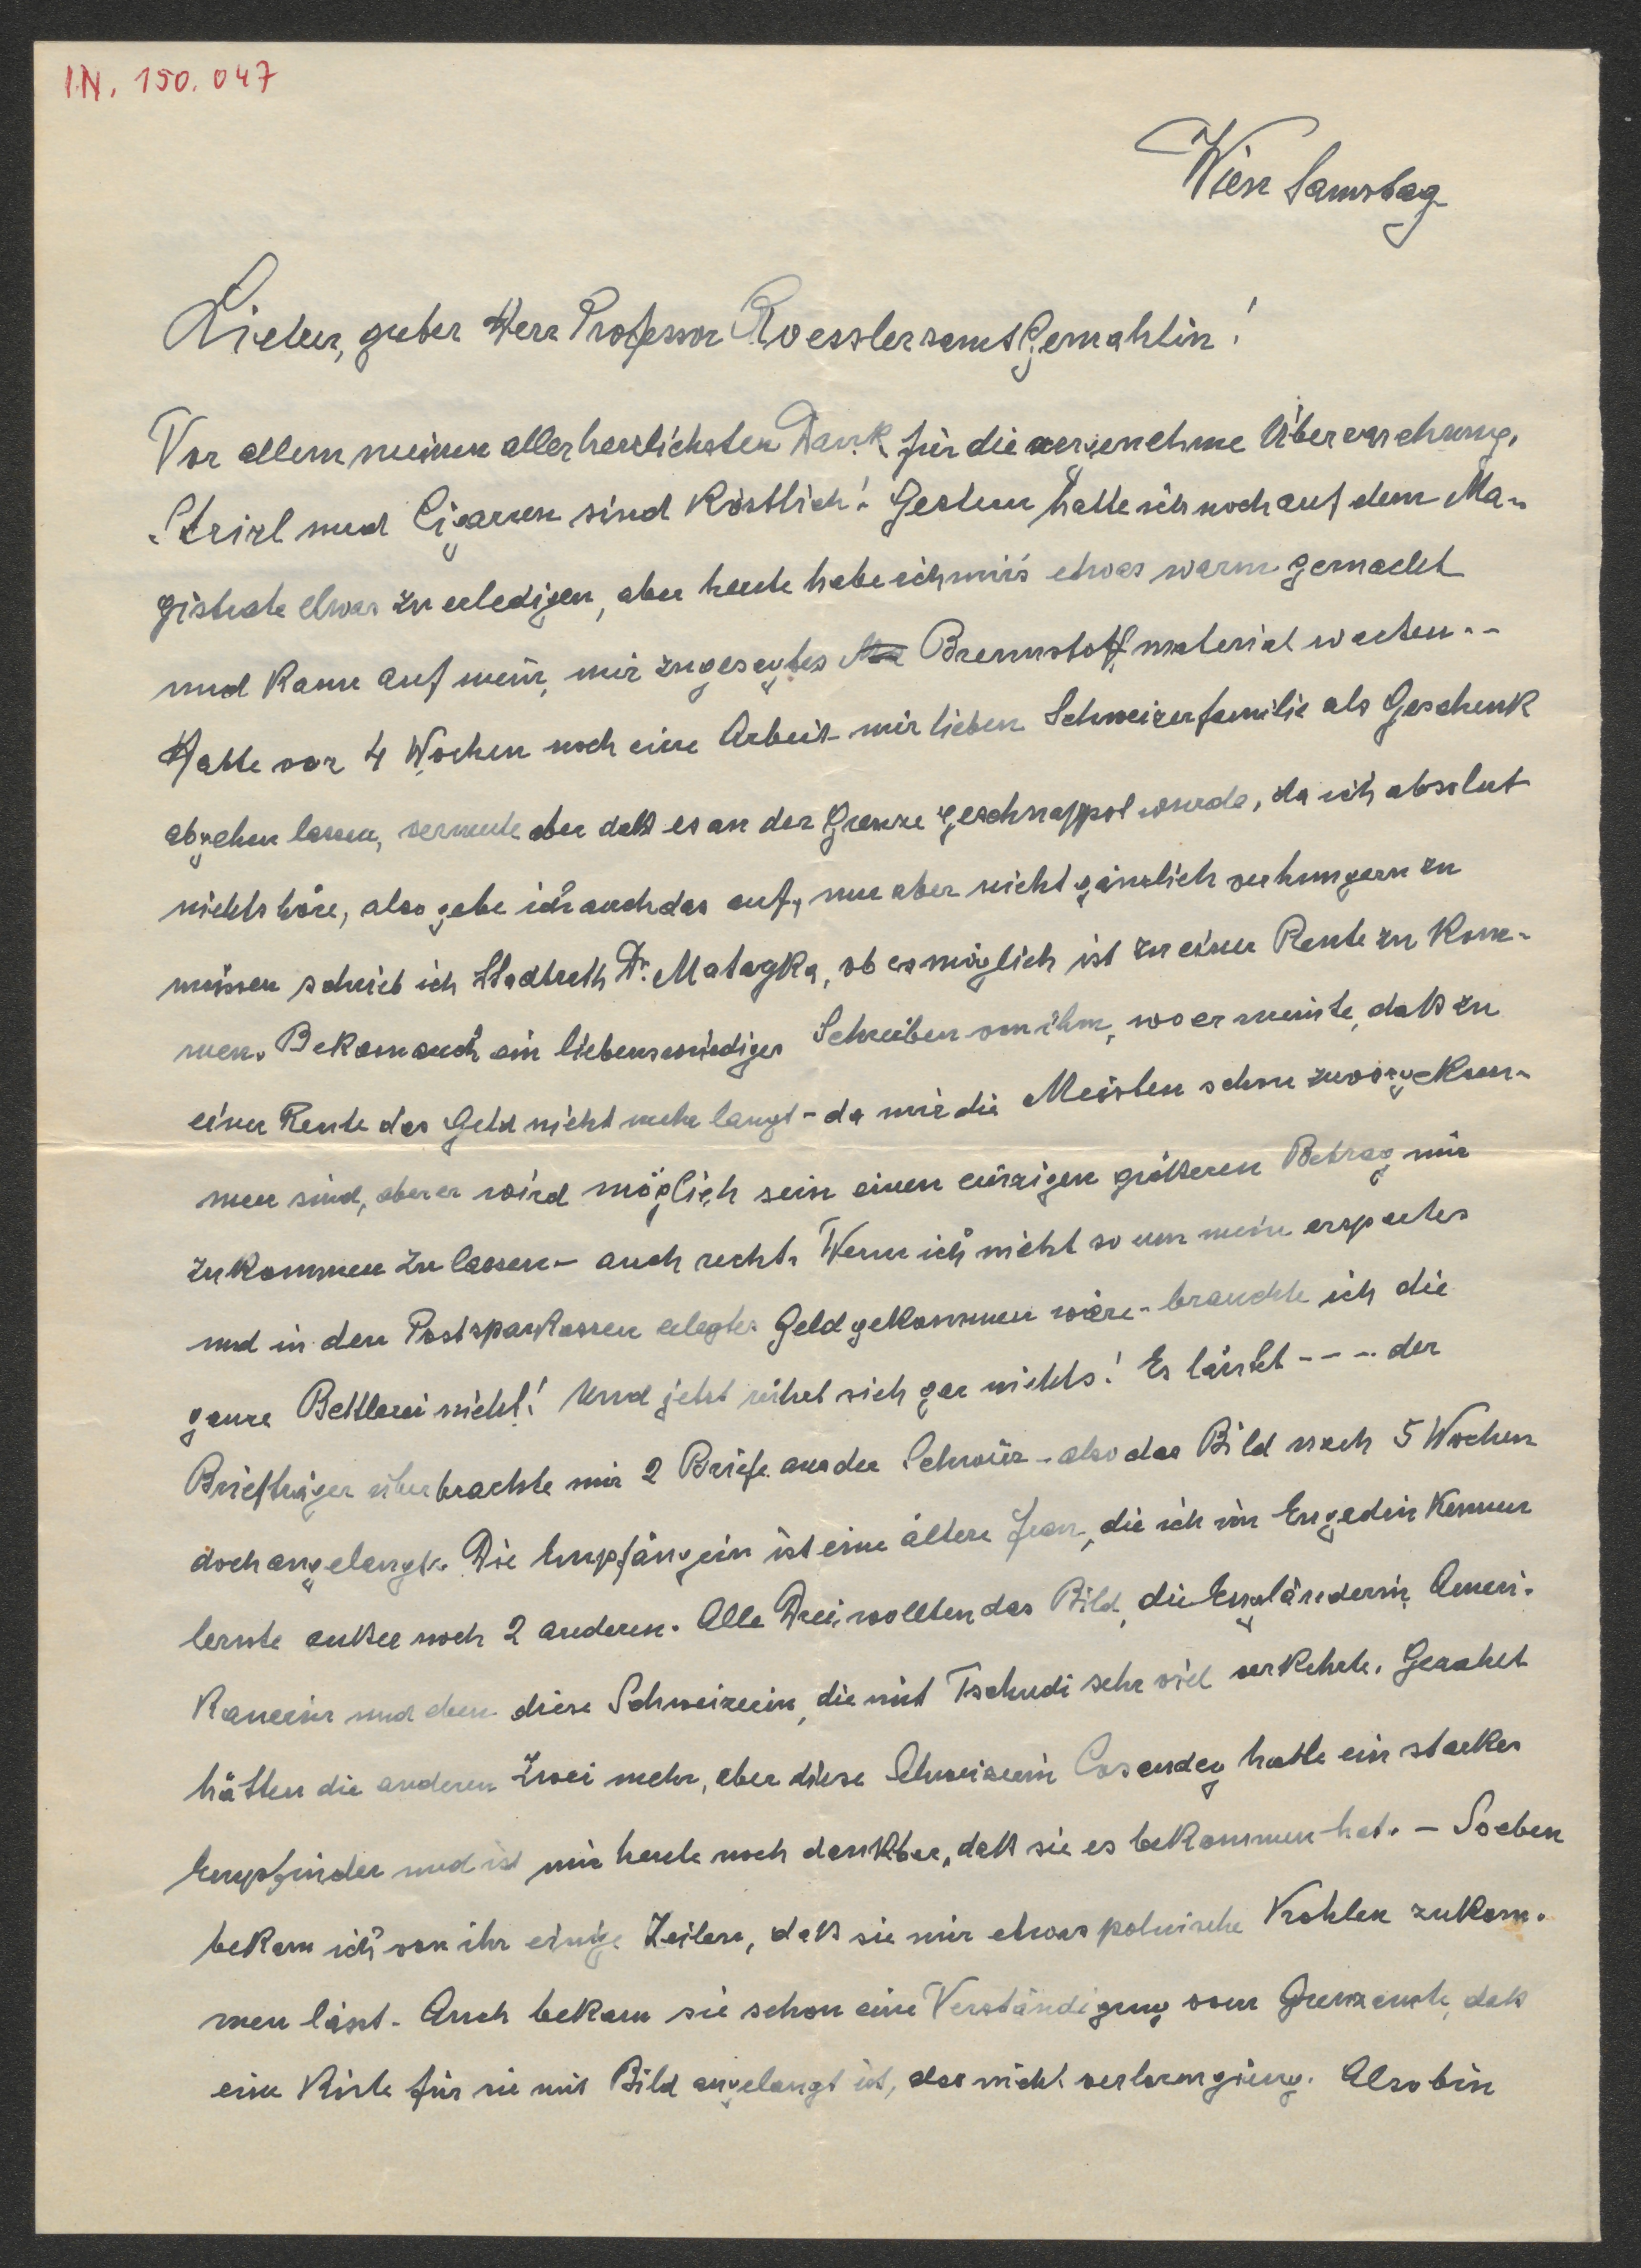 I.N. 150.047
Wien Samstag
Lieber, guter Herr Professor Roessler samt Gemahlin!
Vor allem meinen allerherzlichsten Dank für die angenehme Überraschung.
Strizl und Cigarren sind köstlich! Gestern hatte ich noch auf dem Ma-
gistrate etwas zu erledigen, aber heute habe ich mir's etwas warm gemacht
und kann auf mein, mir zugesagtes Brennstoffmaterial warten..
Hatte vor 4 Wochen noch eine Arbeit mir lieben Schweizerfamilie als Geschenk
abgehen lassen, vermute aber daß es an der Grenze geschnappst wurde, da ich absolut
nichts höre, also gebe ich auch das auf, nun aber nicht gänzlich verhungern zu
müssen schrieb ich Stadtrath Dr. Matayka, ob es möglich ist zu einer Rente zu kom-
men. Bekam auch ein liebenswürdiges Schreiben von ihm, wo er meinte, daß zu
einer Rente das Geld nicht mehr langt - da mir die Meisten schon zuvorgekom-
men sind, aber er wird möglich sein einen einzigen größeren Betrag mir
zukommen zu lassen - auch recht. Wenn ich nicht so um mein erspartes
und in den Postsparkassen erlegtes Geld gekommen wäre - brauchte ich die
ganze Bettlerei nicht! Und jetzt rührt sich gar nichts! Es läutet - - - - der
Briefträger überbrachte mir 2 Briefe aus der Schweiz - also das Bild nach 5 Wochen
doch angelangt. Die Empfängerin ist eine ältere Frau, die ich im Engadin kennen
lernte außer noch 2 anderen. Alle Drei wollten das Bild, die Engländerin, Ameri-
kanerin und eben diese Schweizerin, die mit Tschudi sehr viel verkehrte. Gezahlt
hätten die anderen Zwei mehr, aber diese Schweizerin Cosandey hatte ein starkes
Empfinden und ist mir heute noch dankbar, daß sie es bekommen hat. - Soeben
bekam ich von ihr einige Zeilen, daß sie mir etwas polnische Kohlen zukom-
men lässt. Auch bekam sie schon eine Verständigung vom Grenzamte, daß
eine Kiste für sie mit Bild angelangt ist, das nicht verloren gieng. Also bin